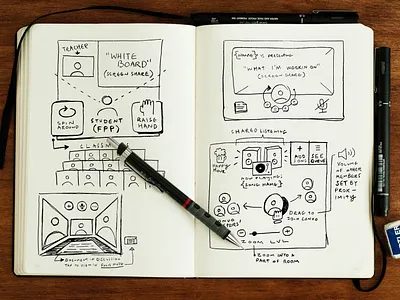 TEACHER
"WHITE
BOARD"
(SCREEN SHARE)
SPIN
AROUND
STUDENT
(FPP)
RAISE
HAND
CLASSM
DOCUMENT IN DISCUSSION
TAP TO VIEW IN
{NAME} is PRESENTING
"WHAT I'M WORKIN ON"
(SCREEN SHARE)
SHARED LISTENING
NOW PLAYING:
{SONG NAME}
+
ADD
SONG
SEE
QUEUE
VOLUME
OF OTHER
MEMBERS
SET BY
PROX-
IMITY
DRAG TO
JOIN CONVO
ZOOM LVL
ZOOM INTO A
PART OF ROOM